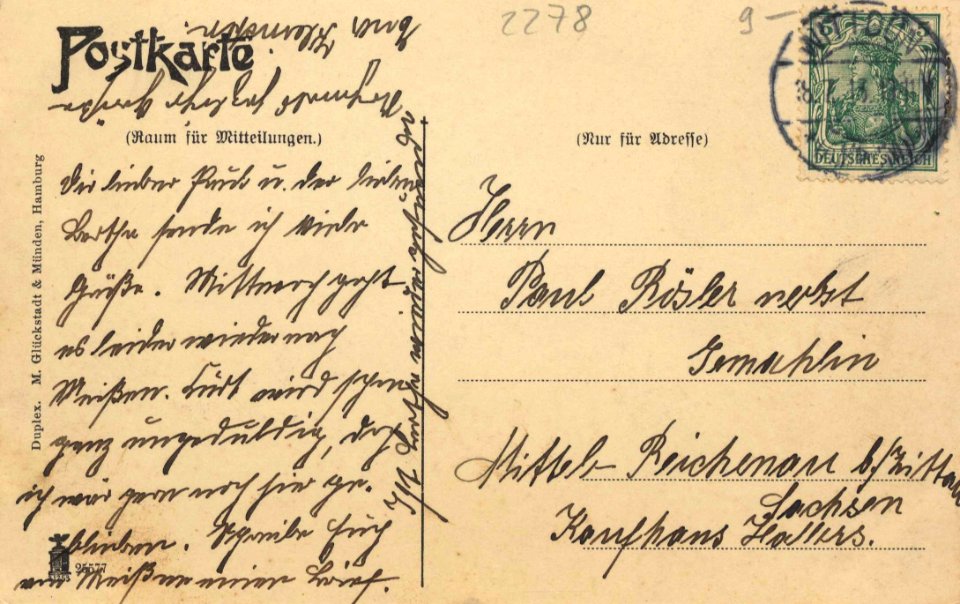 2278
9 —
Postkarte
(Raum für Mitteilungen.)
(Nur für Adresse)
DEUTSCHES REICH
Duplex. M. Glückstadt & Münden, Hamburg
Die lieber Paul u. der lieben
Bertha sende ich viele
Grüße. Mittwoch geht
es leider wieder nach
Meißen. Kurt wird schon
ganz ungeduldig, daß
ich wär gern noch hier ge-
blieben. Schreibe Euch
von Meißen einen Brief.
Ist Bertha wieder
Herrn
Paul Rösler nebst
Gemahlin
Mittel-Reichenau b/Zittau
Sachsen
Kaufhaus Hallers.
25577